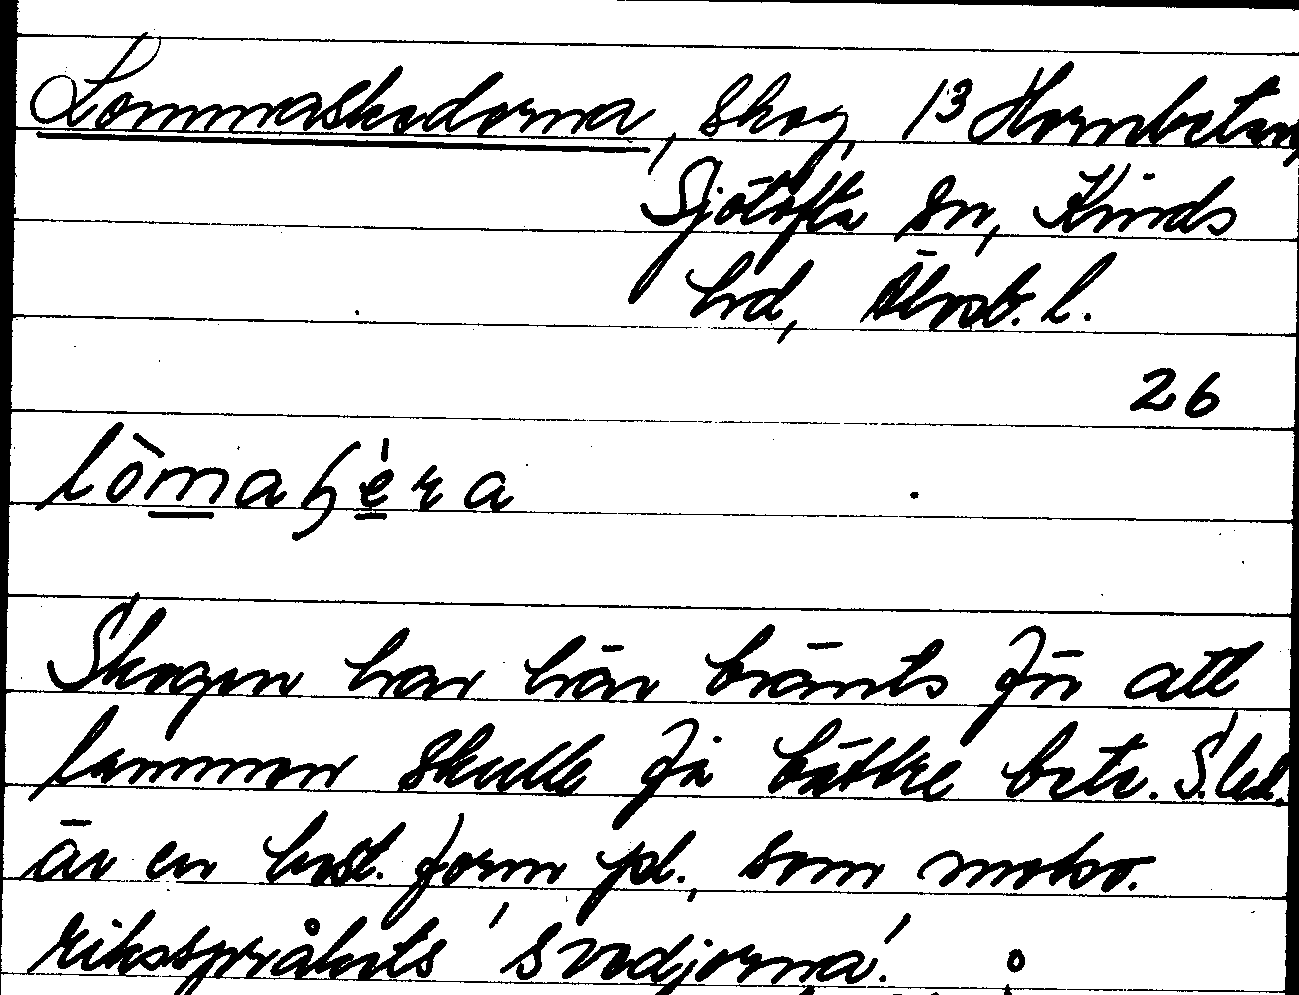 Lommaskedorna, skog, 13 Hornbetan,
Sjötofta sn, Kinds
hrd, Älvsb. l.
26
lòmaɧéra
Skogen har här bränts för att
lammen skulle få bättre bete. S.led.
är en best. form pl., som motsv.
riksspråkets 'svedjorna'.